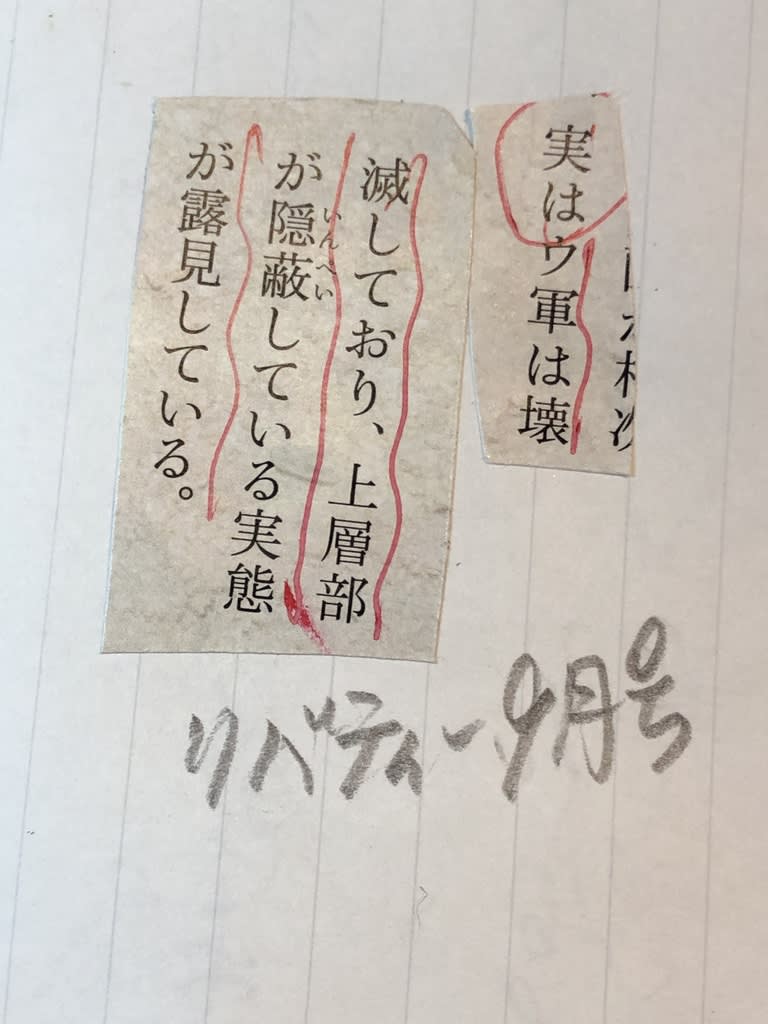 実はウ軍は壊
滅しており、上層部
が隠蔽している実態
いんぺい
が露見している。
リバティー9月号